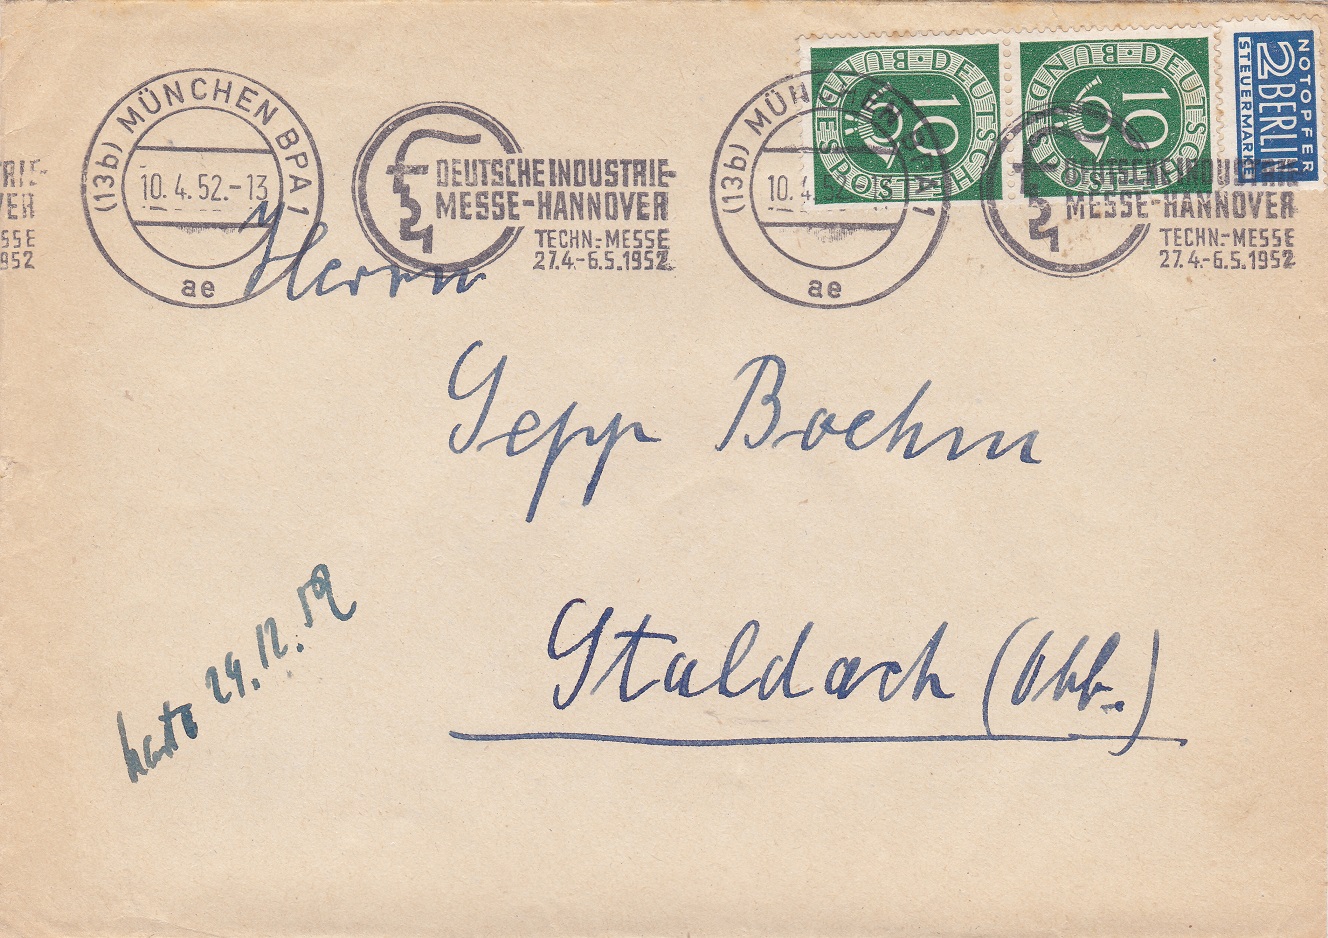 (13b) MÜNCHEN BPA 1
10.4.52.-13
ae
DEUTSCHE INDUSTRIE-
MESSE-HANNOVER
TECHN.-MESSE
27.4.-6.5.1952
(13b) MÜNCHEN BPA 1
10.4.52.-13
ae
DEUTSCHE INDUSTRIE-
MESSE-HANNOVER
TECHN.-MESSE
27.4.-6.5.1952
RIE-
VER
SSE
952
DEUTSCHE BUNDESPOST
10
DEUTSCHE BUNDESPOST
10
NOTOPFER
2 BERLIN
STEUERMARKE
Herrn
Sepp Boehm
Staldach (Obb.)
24.12.52